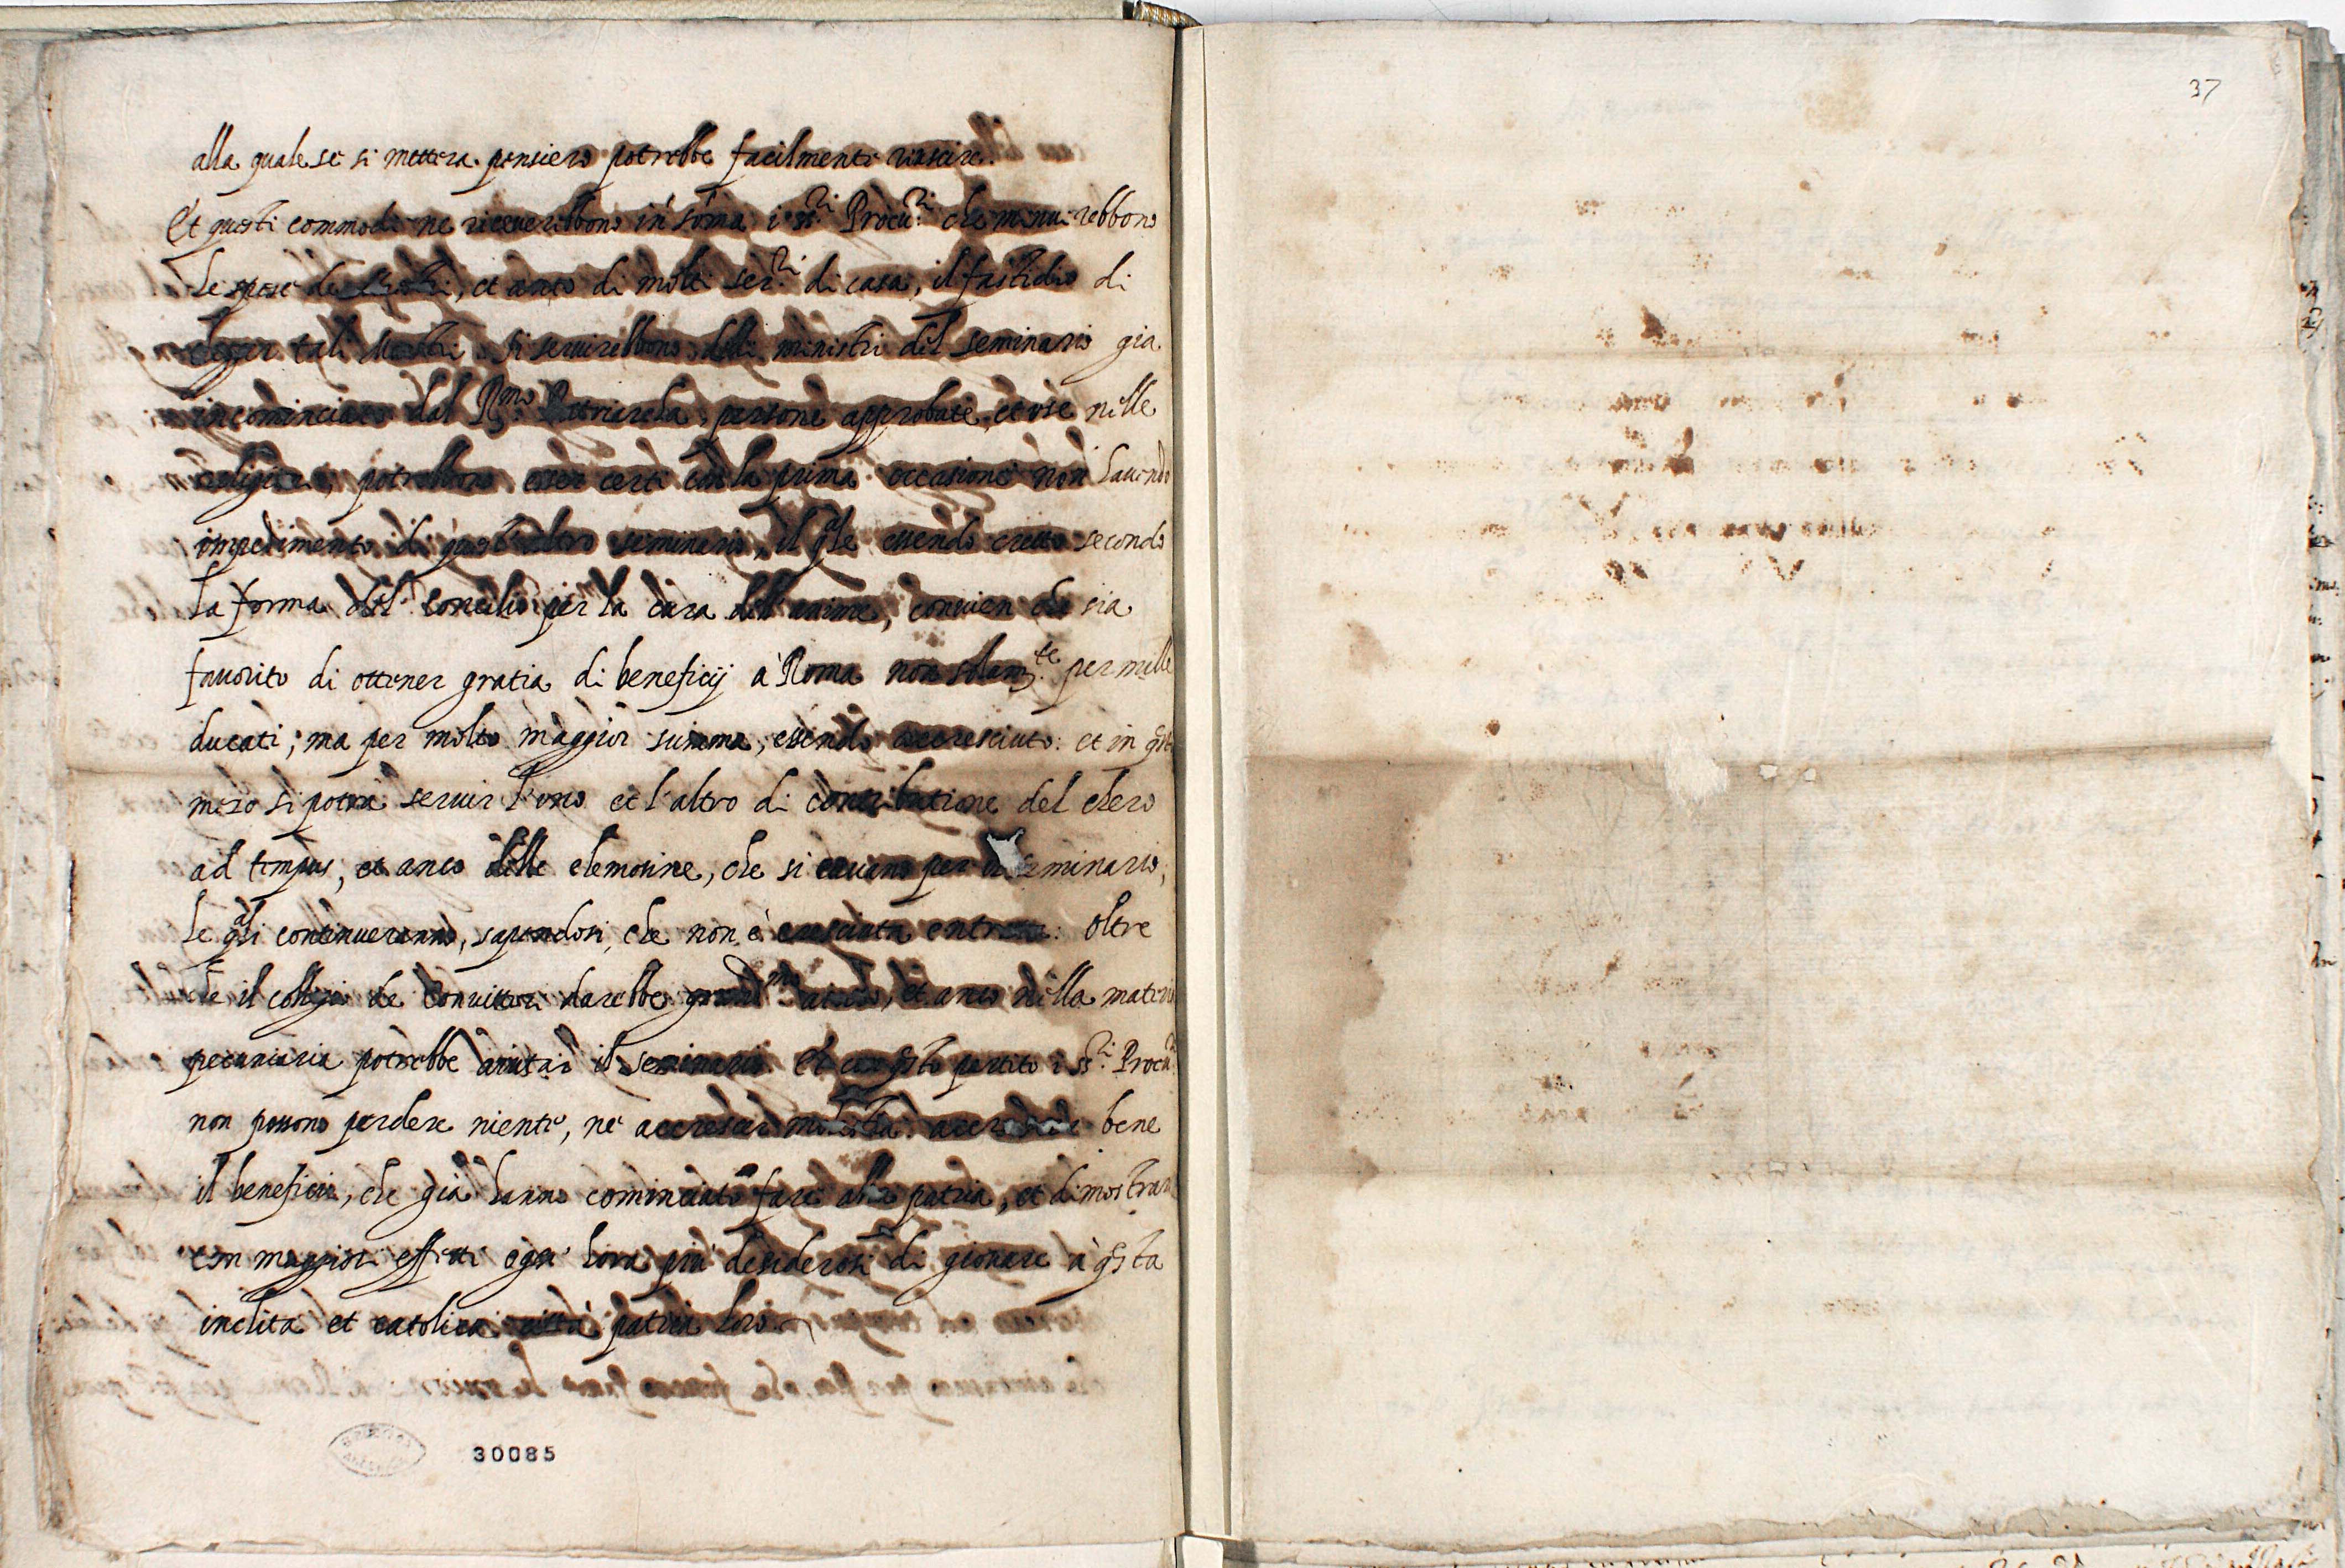 37
alla quale se si mettera pensiero potrebbe facilmente riuscire.
Et questi commodi ne riceverebbono in soma i ss.ri Procu.ri che minuirebbono
le spese de Mastri, et anco di molti ser.ri di casa, il fastidio di
elegger tali Mastri, si servirebbono delli ministri del seminario gia
incominciato dal R.mo Patriarcha, persone approbate, et use nelle
potrebbono esser certi con la prima occasione non havendo
impedimento di quest'altro seminario, il q.ale essendo eretto secondo
la forma del Concilio per la cura dell'anime, convien che sia
favorito di ottener gratia di beneficij à Roma non solam.te per mille
ducati; ma per molto maggior summa, essendo accresciuto: et in q.sto
mezo si potrà servir l'uno et l'altro di contributione del clero
ad tempus, et anco delle elemosine, che si cavano per il seminario,
le q.ali continueranno, sapendosi, che non è cresciuta entrata: oltre
che il collegio de Convittori darebbe grand.mo aiuto, et anco nella materia
pecuniaria potrebbe aiutar il seminario. Et con q.sto partito i ss.ri Procu.ri
non possono perdere niente, ne accrescer molestia: bene
il beneficio, che già hanno cominciato fare alla patria, et dimostrar
con maggiori effetti ogni hora più desiderosi di giovare à q.sta
inclita et catolica città patria loro.
30085